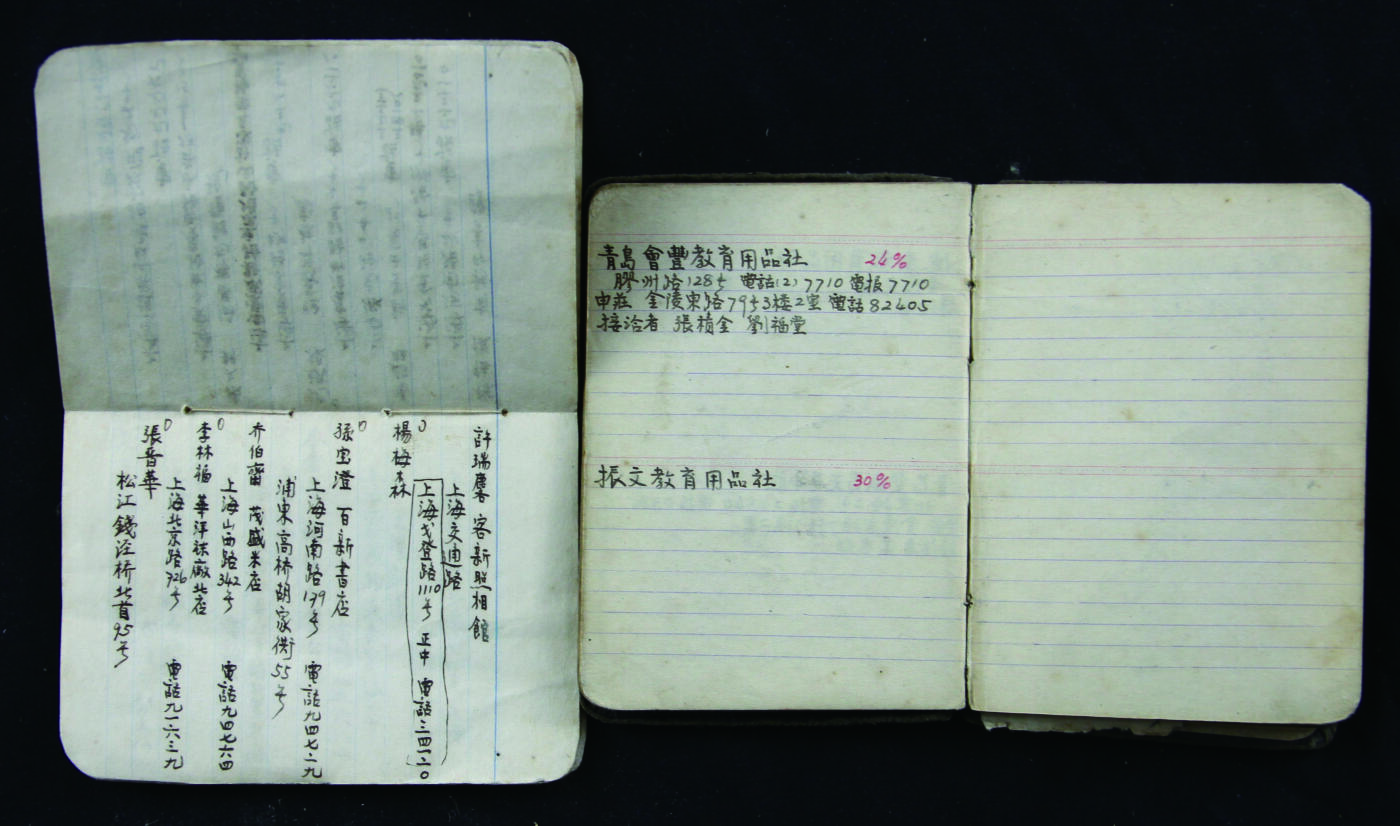 許瑞麐 客新照相館
上海交通路
楊梅森
上海戈登路1110号 正中 電話三四一二〇
孫宝澄 百新書店
上海河南路179号 電話九四七二九
浦東高桥胡家衖55号
乔伯齋 茂盛米店
上海山西路342号 電話九四七六四
李林福 華洋袜廠北店
上海北京路726号 電話九一六三九
張晋華
松江錢泾桥北首95号
青島會豐教育用品社 24%
膠州路128号 電話(2)7710 電报7710
申莊 金陵東路79号3楼2室 電話82405
接洽者 張積金 劉福堂
振文教育用品社 30%